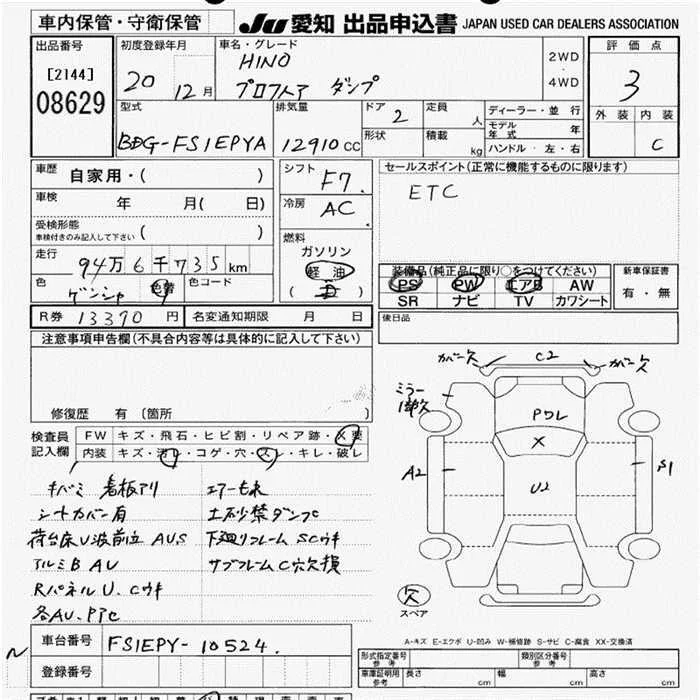 車内保管・守衛保管
JU 愛知 出品申込書 JAPAN USED CAR DEALERS ASSOCIATION
出品番号
[2144]
08629
初度登録年月
20 12月
車名・グレード
HINO
プロフィア ダンプ
2WD
・
4WD
評価点
3
外装 内装
C
型式
BDG-FS1EPYA
排気量
12910 CC
ドア
2
形状
定員
人
積載
kg
ディーラー・並行
モデル年式 年
ハンドル・左・右
車歴
自家用・( )
車検
年 月( 日)
受検形態
車検付きのみ記入して下さい ( )
走行
94万6千735 km
色
色替
色コード
シフト
F7
冷房
AC
燃料
ガソリン
軽油
セールスポイント(正常に機能するものに限ります)
ETC
装備品(純正品に限り○をつけてください)
PS PW エアB AW
SR ナビ TV カワシート
新車保証書
有・無
後日品
R券 13370 円
名変通知期限 月 日
注意事項申告欄(不具合内容等は具体的に記入して下さい)
修復歴 有 (箇所 )
検査員
記入欄
FW キズ・飛石・ヒビ割・リペア跡・X要
内装 キズ・汚レ・コゲ・穴・スレ・キレ・破レ
キバミ 看板アリ
シートカバー有
荷台床U波前立 AUS
アルミB AU
RパネルU. Cウキ
各AU. Pアセ
エアー也
土砂禁ダンプ
下廻リフレーム SCウキ
サブフレームC穴欠損
カバー欠
C2
カバー欠
ミラー
Pワレ
X
A2
U2
S1
欠
スペア
A-キズ E-エクボ U-凹み W-補修跡 S-サビ C-腐食 XX-交換済
車台番号
FS1EPY-10524.
登録番号
形式指定番号
参考
類別区分番号
参考
車庫証明用
参考
長さ cm
幅 cm
高さ cm